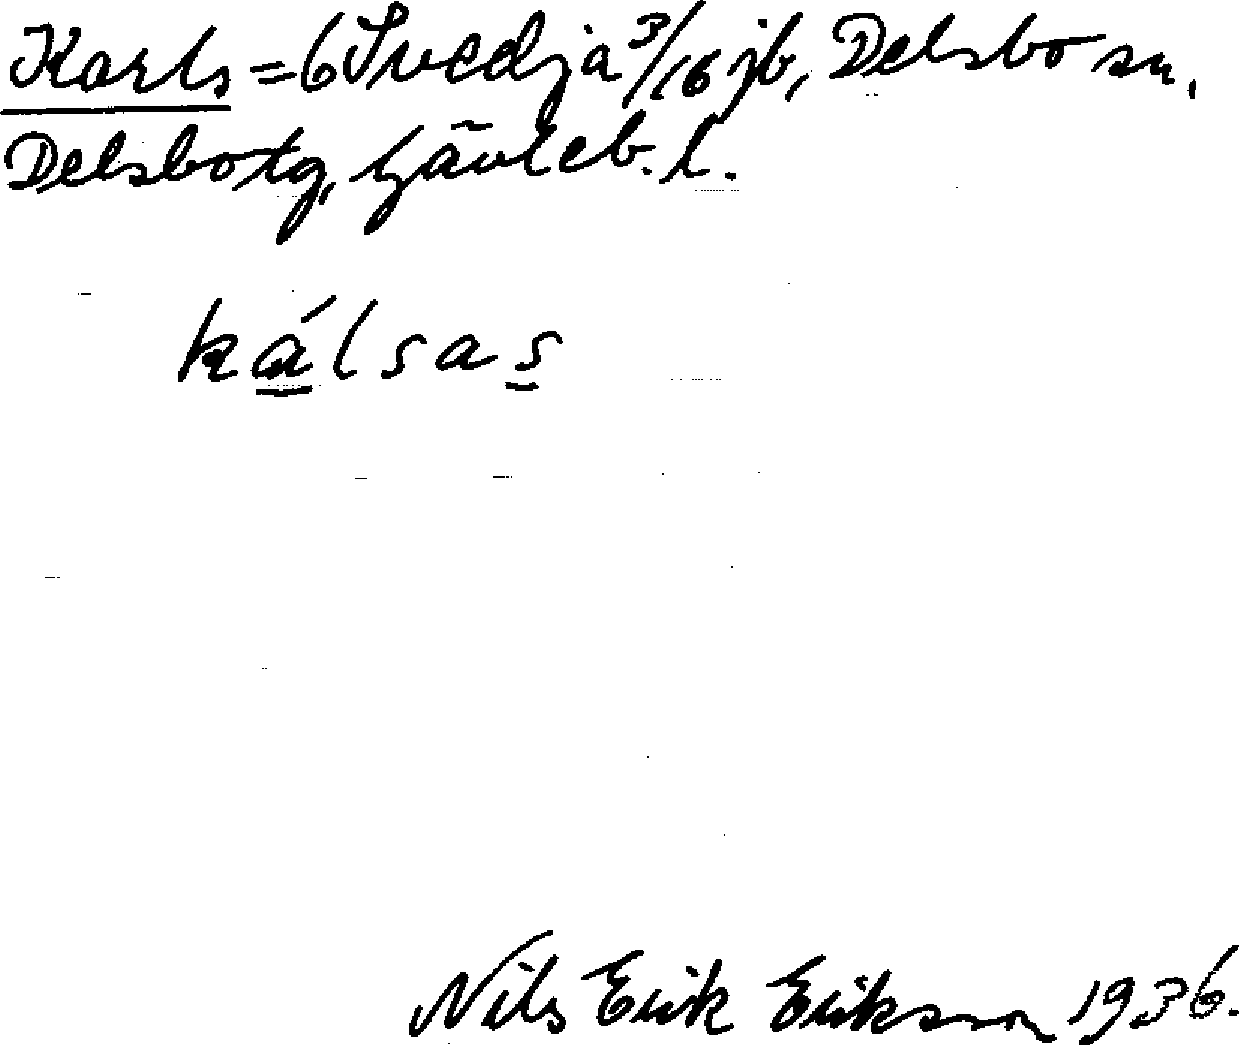 Karls = 6 Svedja 3/16 jb, Delsbo sn,
Delsbo tg, Gävleb. l.
kálsas
Nils Erik Eriksson 1936.